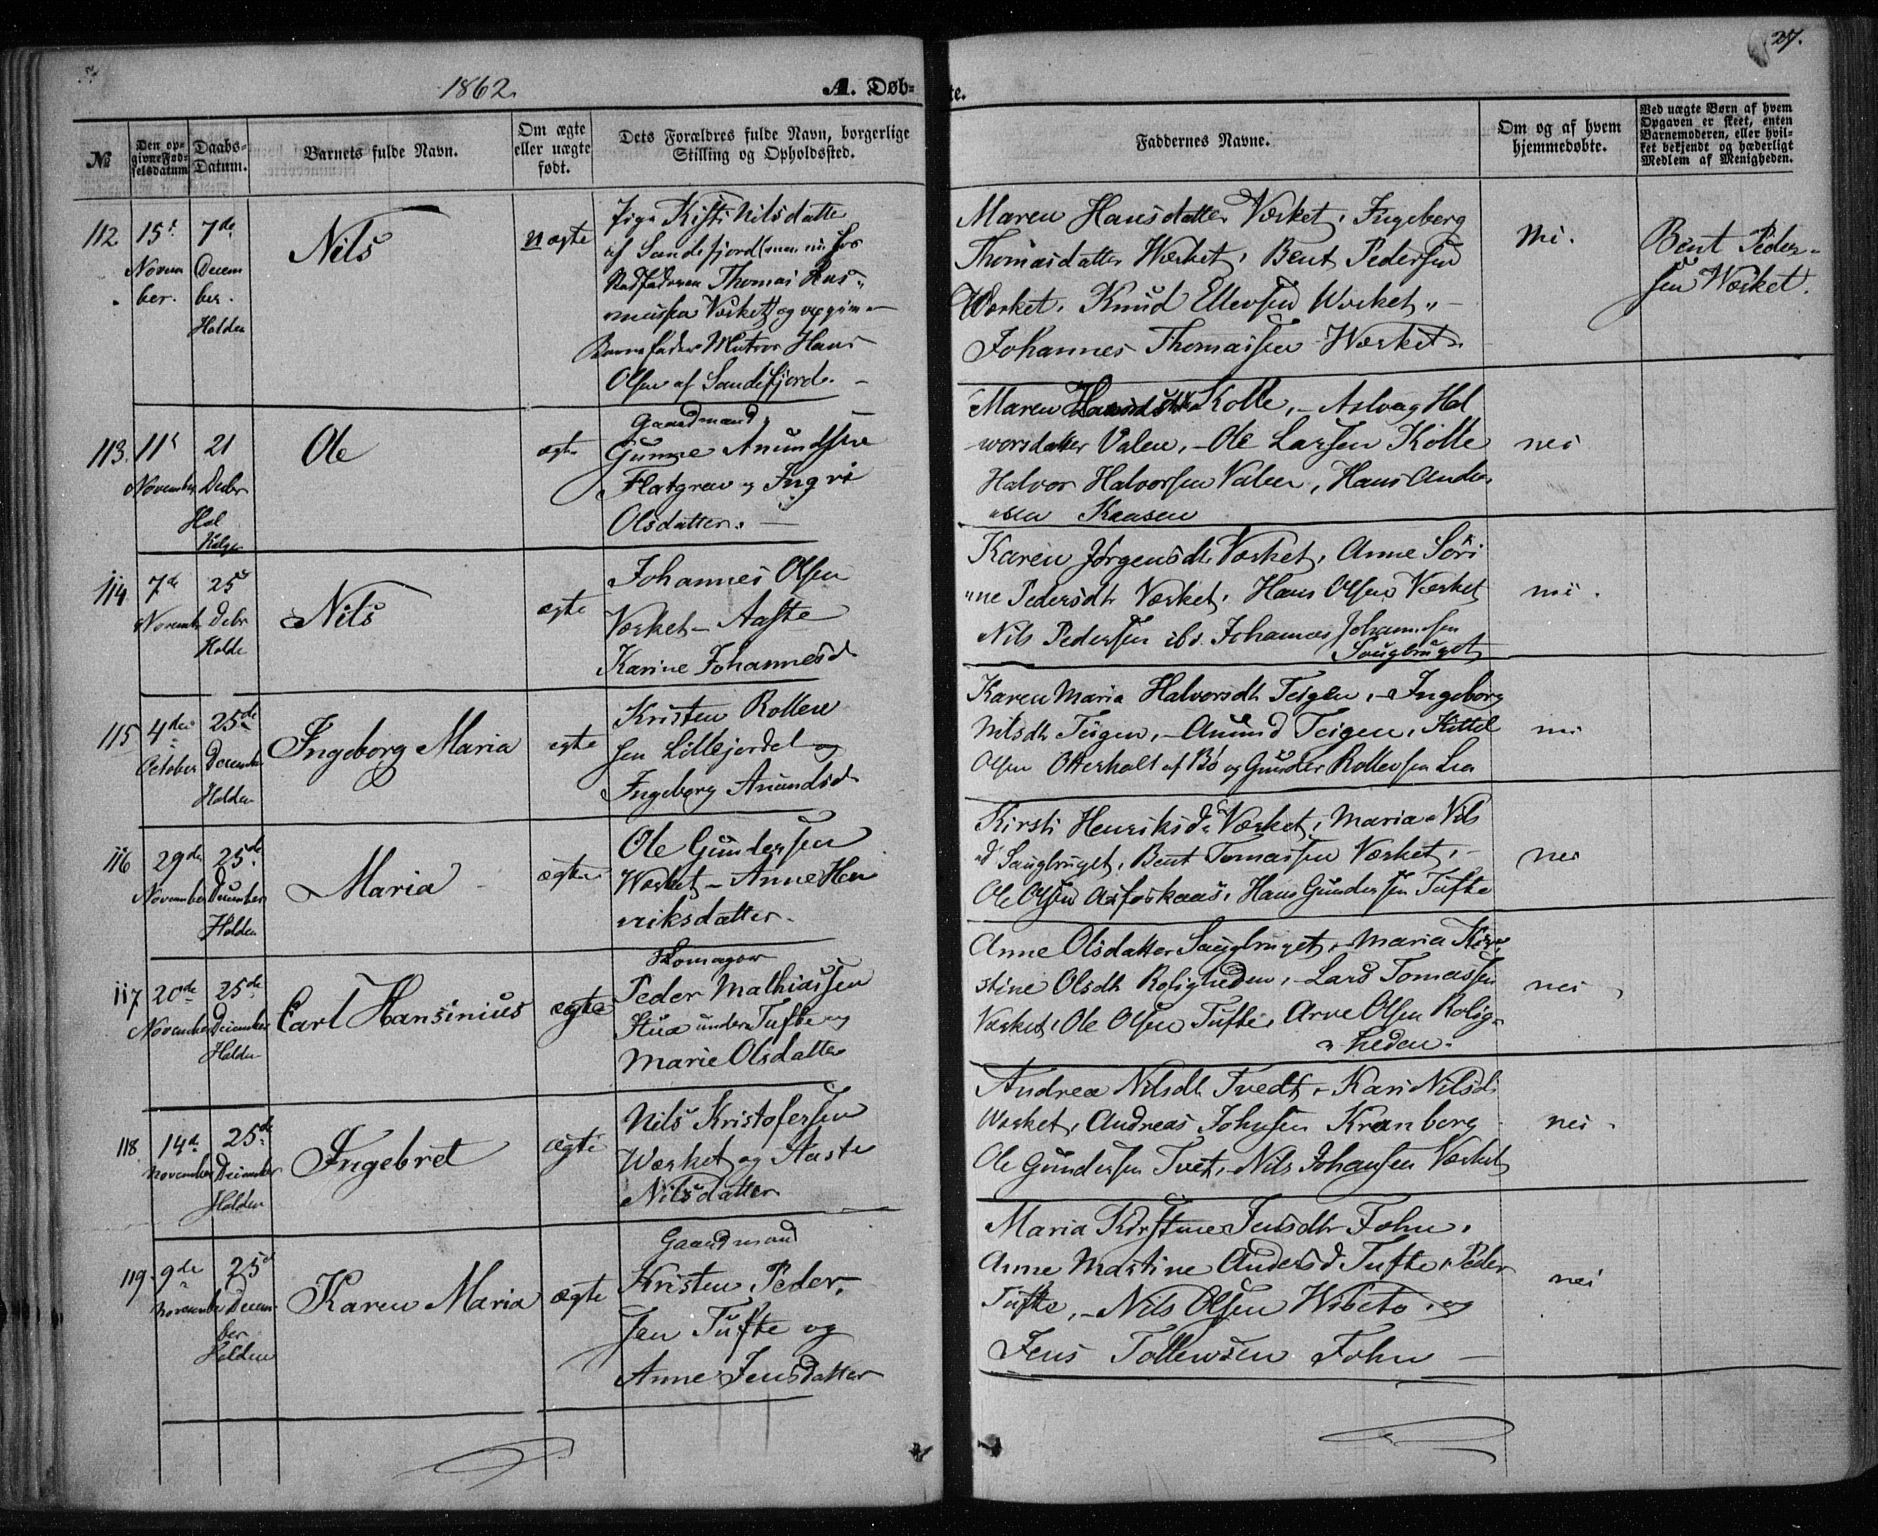 1862.
A. Døb-
te.
27.
№
Den op-
givne Fød-
selsdatum
Daabs-
Datum.
Barnets fulde Navn.
Om ægte
eller uægte
født.
Dets Forældres fulde Navn, borgerlige
Stilling og Opholdssted.
Faddernes Navne.
Om og af hvem
hjemmedøbte.
Ved uægte Børn af hvem
Opgaven er skeet, enten
Barnemoderen, eller hvil-
ket bekjendt og hæderligt
Medlem af Menigheden.
112
15
Novem
ber.
7de
Decem
ber.
Holden
Nils
uægte
Pige Kisti Nilsdatter
af Sandefjord
Thomas Ras-
mussen Værket og
Barnefader Matros Hans
Olsen af Sandefjord. -
Maren Hansdatter Værket, Ingeborg
Thomasdatter Værket, Bent Pedersen
Værket, Knud Ellevsen Værket, -
Johannes Thomassen Værket.
nei.
Bent Peder-
sen Værket.
113.
11
November
21
Decbr
Ole
ægte
Gaardmand
Gunne Anundsen
Flatgrav og Ingri
Olsdatter. -
Maren Kolle, - Aslaug Hal
vorsdatter Valen, - Ole Larsen Kolle
Halvor Halvorsen Valen, Hans Anders
sen Kaasen
nei
114
7de
Novemb
25
Debr
Holde
Nils
ægte
Johannes Olsen
Værket - Aaste
Karine Johannesd
Karen Jørgensdt Værket, Anne Søri
ne Pedersdt Værket, Hans Olsen Værket
Nils Pedersen ibd. Johannes Johannesen
Saugbruget
nei.
115
4de
October
25de
December
Holden
Ingeborg Maria
ægte
Kristen Rolleve
sen Lillejordet og
Ingeborg Anundsd
Karen Maria Halvorsdt Teigen, - Ingeborg
Nilsdt Teigen, - Anund Teigen, Kittel
Olsen Otterholt af Bø og Gunder Rollevsen Lia
nei
116
29de
November
25de
December
Holden
Maria
ægte
Ole Gundersen
Værket - Anne Hen
riksdatter.
Kirsti Henriksd Værket, Maria Nils
d Saugbruget, Bent Tomassen Værket, -
Ole Olsen Aasoskaas, Hans Gundersen Tufte
nei
117
20de
November
25de
December
Holden
Carl Hansinius
ægte
Skomager
Peder Mathiassen
Stua under Tufte og
Marie Olsdatter
Anne Olsdatter Saugbruget, Maria Kir
stine Olsdt Roligheden, Lars Tomassen
Værket, Ole Olsen Tufte, Arve Olsen Rolig-
heden.
nei
118
14d
November
25de
December
Holden
Ingebret
ægte
Nils Kristofersen
Værket og Aaste
Nilsdatter
Andrea Nilsdt Tvedt, Kari Nilsd
Værket, Andreas Johnsen Kranborg
Ole Gundersen Tvet, Nils Johansen Værket
nei
119
9de
November
25d
Decem
ber
Holden
Karen Maria
ægte
Gaardmand
Kristen Peder-
sen Tufte og
Anne Jensdatter
Maria Kirstine Jensdt Fohn,
Anne Martine Andersd Tufte, Peder
Tufte, - Nils Olsen Wibeto, og
Jens Tollevsen Fohn -
nei